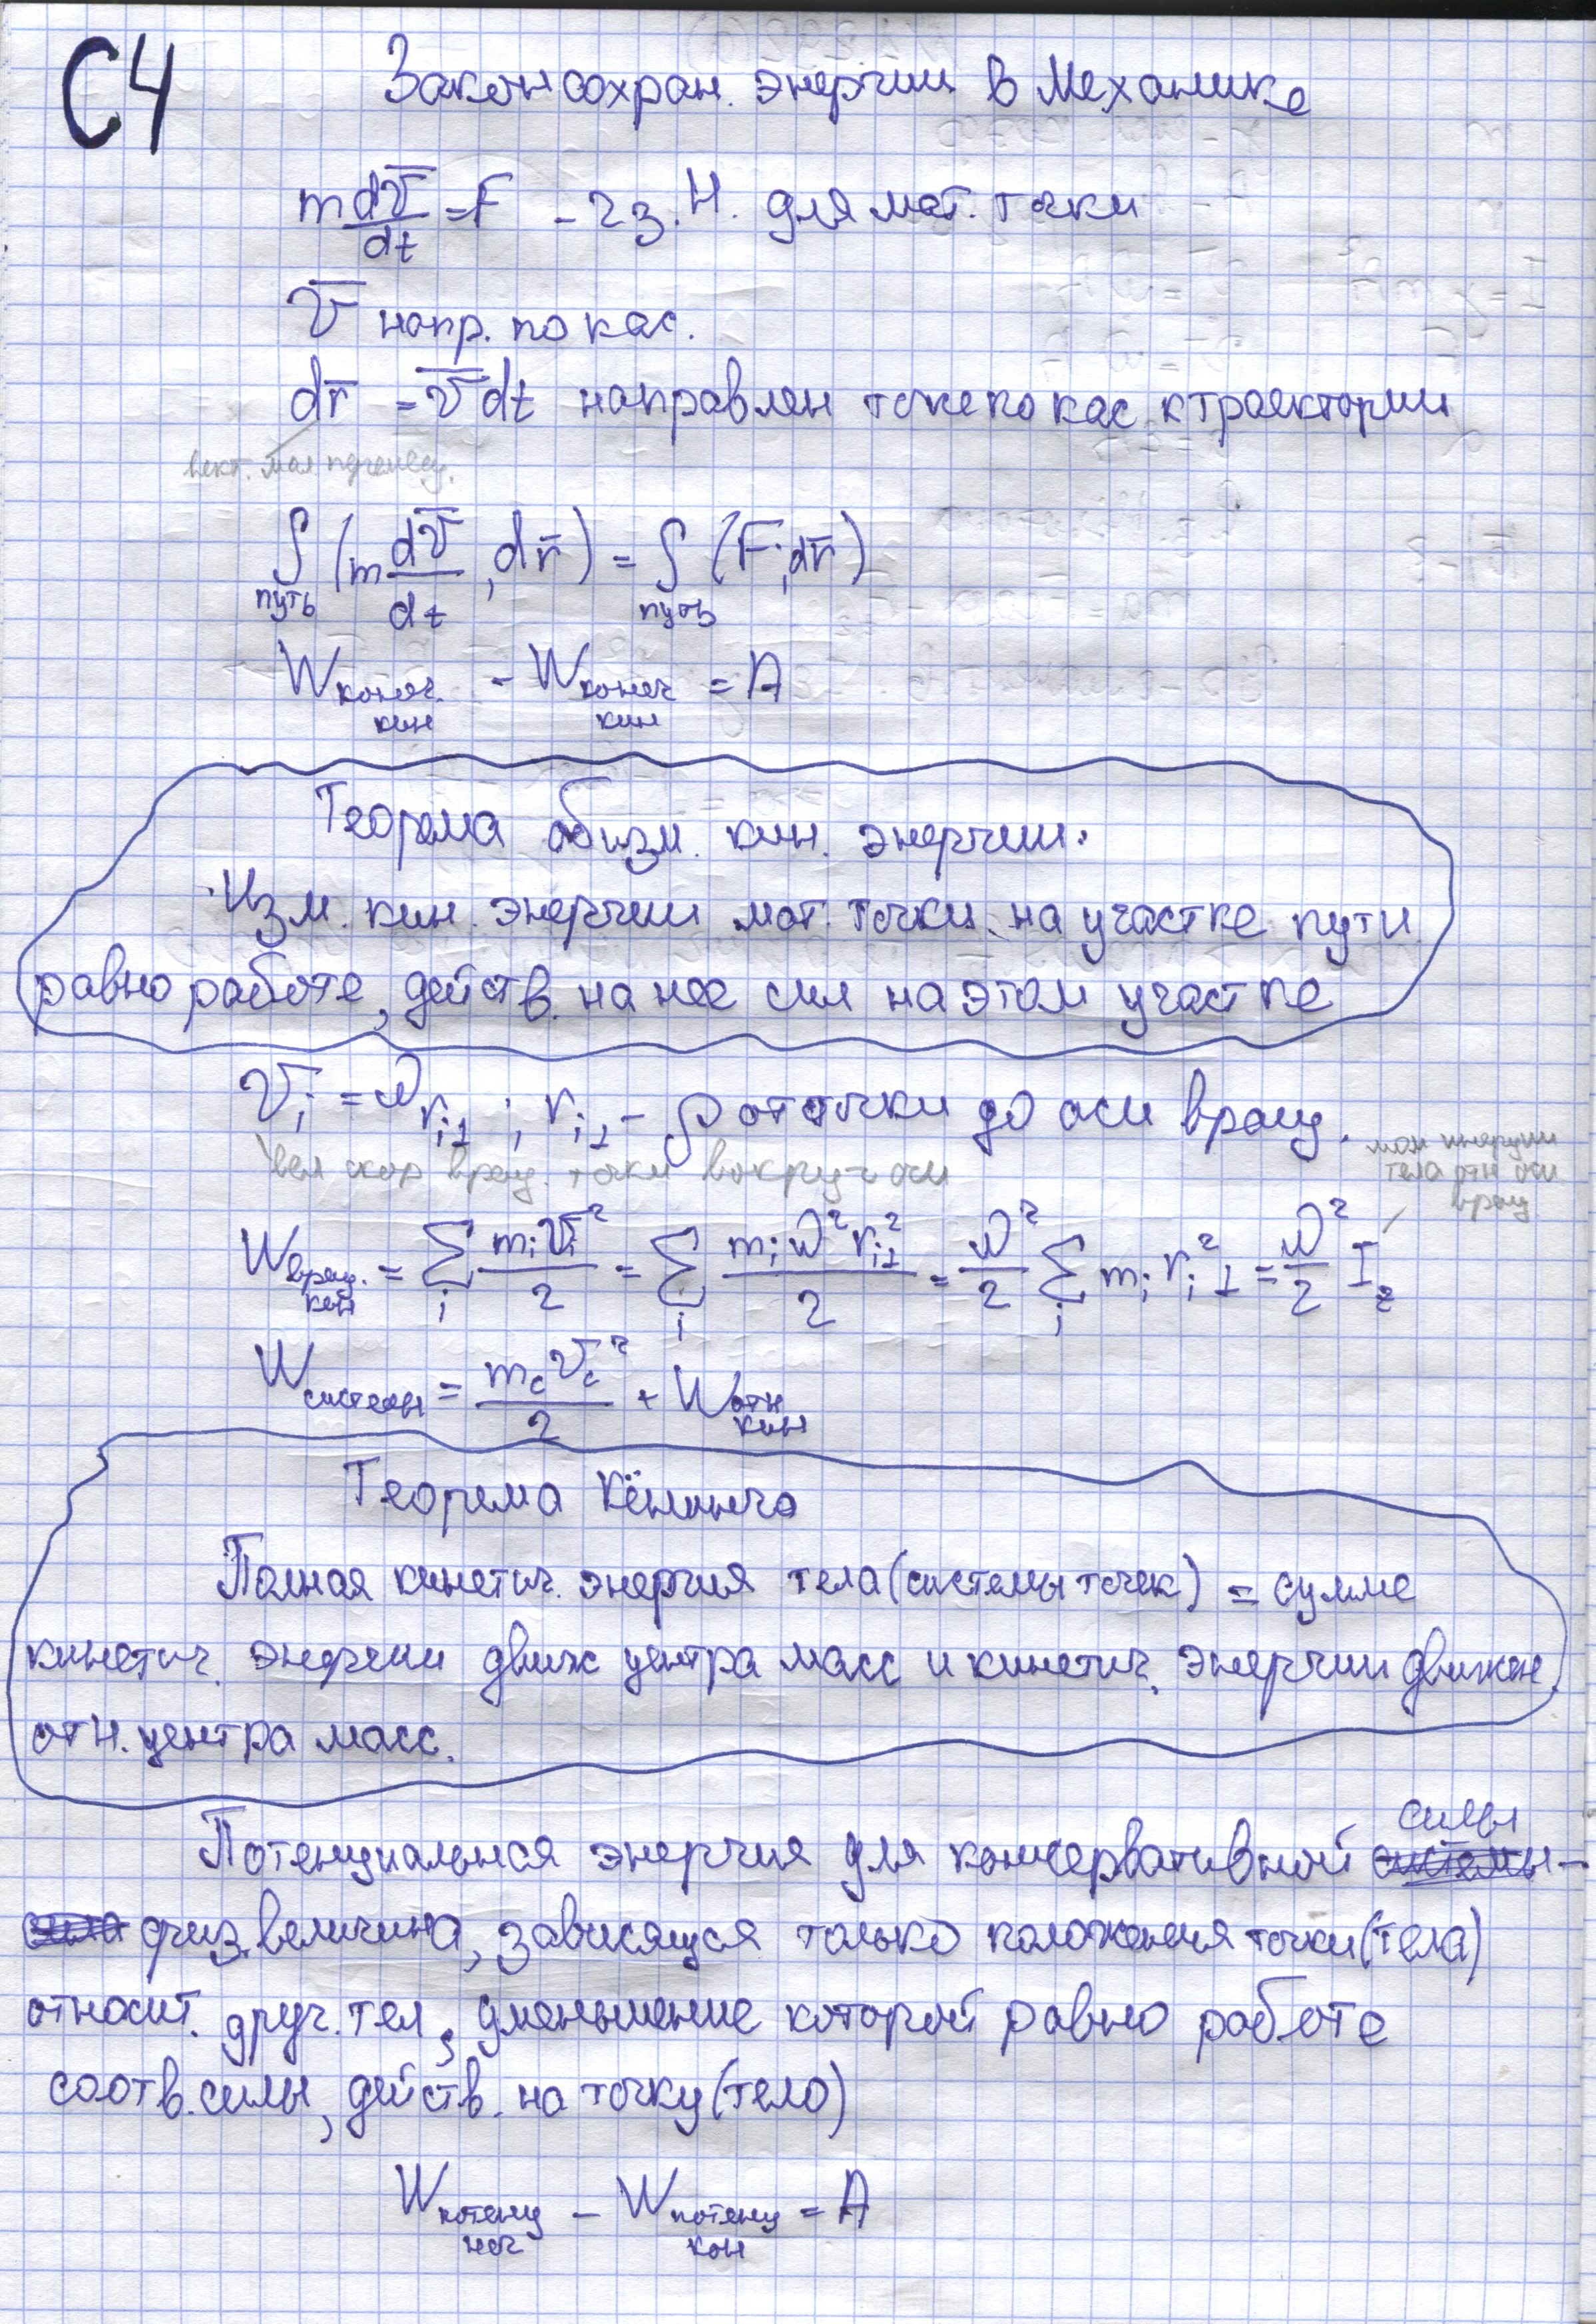 С4
Закон сохран. энергии в механике
m dv̅/dt = F - 2 з. Н. для мат. точки
v̅ напр. по кас.
dr̅ = v̅dt направлен тоже по кас к траектории
вект. мал. перемещ.
∫путь (m dv̅/dt, dr̅) = ∫путь (F; dr̅)
Wконеч. кин - Wконеч кин = A
Теорема об изм. кин. энергии.
Изм. кин. энергии мат. точки на участке пути
равно работе, действ. на нее сил на этом участке
vi = ω ri⊥ ; ri⊥ - ρ от точки до оси вращ.
вел скор вращ. точки вокруг оси
мом инерции
тела отн оси
вращ
Wвращ. кин = Σi mi vi²/2 = Σi mi ω² ri⊥²/2 = ω²/2 Σi mi ri²⊥ = ω²/2 Iz
Wсистемы = mc vc²/2 + Wотн кин
Теорема Кёнинга
Полная кинетич. энергия тела (системы точек) = сумме
кинетич. энергии движ центра масс и кинетич. энергии движен.
отн. центра масс.
силы
Потенциальная энергия для консервативной системы -
сила физ. величина, зависящая только положения точки (тела)
относит. друг. тел, уменьшение которой равно работе
соотв. силы, действ. на точку (тело)
Wпотенц нач - Wпотенц кон = A